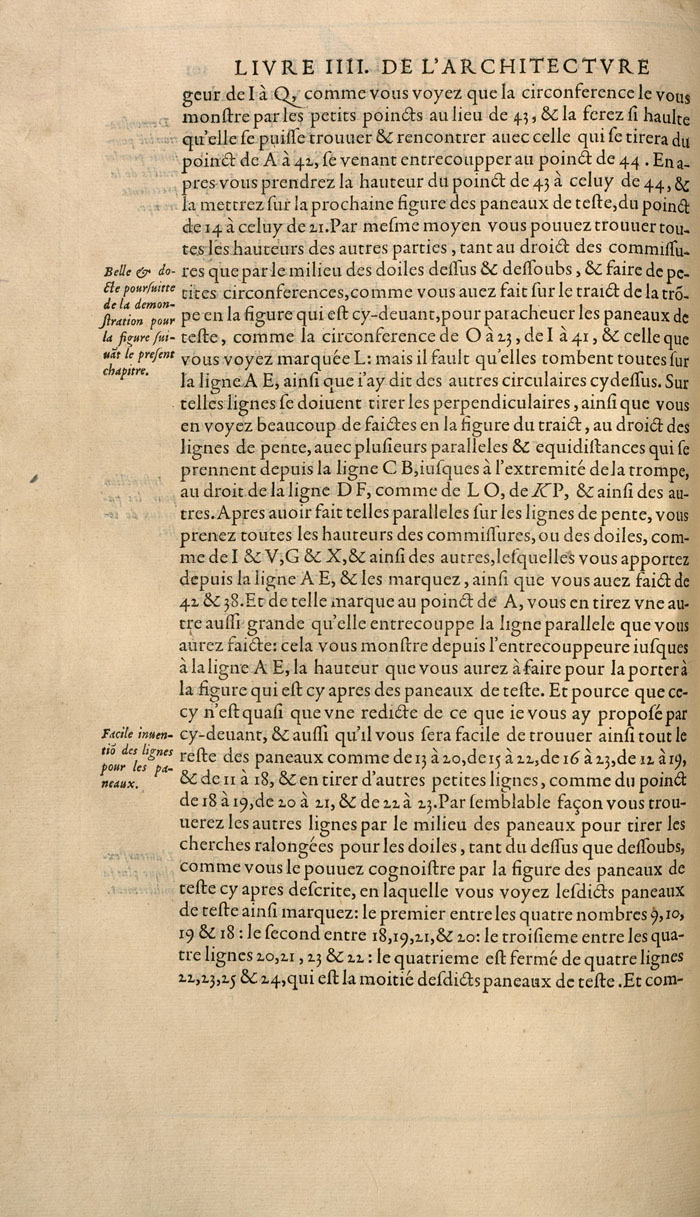 LIVRE IIII. DE L'ARCHITECTVRE
geur de I à Q, comme vous voyez que la circonference le vous
monſtre par les petits poincts au lieu de 43, & la ferez ſi haulte
qu'elle ſe puiſſe trouuer & rencontrer auec celle qui ſe tirera du
poinct de A à 42, ſe venant entrecoupper au poinct de 44. En a-
pres vous prendrez la hauteur du poinct de 43 à celuy de 44, &
la mettrez ſur la prochaine figure des paneaux de teſte, du poinct
de 14 à celuy de 21. Par meſme moyen vous pouuez trouuer tou-
tes les hauteurs des autres parties, tant au droict des commiſſu-
res que par le milieu des doiles deſſus & deſſoubs, & faire de pe-
tites circonferences, comme vous auez fait ſur le traict de la trõ-
pe en la figure qui eſt cy-deuant, pour paracheuer les paneaux de
teſte, comme la circonference de O à 23, de I à 41, & celle que
vous voyez marquée L: mais il fault qu'elles tombent toutes ſur
la ligne A E, ainſi que i'ay dit des autres circulaires cydeſſus. Sur
telles lignes ſe doiuent tirer les perpendiculaires, ainſi que vous
en voyez beaucoup de faictes en la figure du traict, au droict des
lignes de pente, auec pluſieurs paralleles & equidiſtances qui ſe
prennent depuis la ligne C B, iuſques à l'extremité de la trompe,
au droit de la ligne D F, comme de L O, de K P, & ainſi des au-
tres. Apres auoir fait telles paralleles ſur les lignes de pente, vous
prenez toutes les hauteurs des commiſſures, ou des doiles, com-
me de I & V, G & X, & ainſi des autres, leſquelles vous apportez
depuis la ligne A E, & les marquez, ainſi que vous auez faict de
42 & 38. Et de telle marque au poinct de A, vous en tirez vne au-
tre auſſi grande qu'elle entrecouppe la ligne parallele que vous
aurez faicte: cela vous monſtre depuis l'entrecouppeure iuſques
à la ligne A E, la hauteur que vous aurez à faire pour la porter à
la figure qui eſt cy apres des paneaux de teſte. Et pource que ce-
cy n'eſt quaſi que vne redicte de ce que ie vous ay propoſé par
cy-deuant, & auſſi qu'il vous ſera facile de trouuer ainſi tout le
reſte des paneaux comme de 13 à 20, de 15 à 22, de 16 à 23, de 12 à 19,
& de 11 à 18, & en tirer d'autres petites lignes, comme du poinct
de 18 à 19, de 20 à 21, & de 22 à 23. Par ſemblable façon vous trou-
uerez les autres lignes par le milieu des paneaux pour tirer les
cherches ralongées pour les doiles, tant du deſſus que deſſoubs,
comme vous le pouuez cognoiſtre par la figure des paneaux de
teſte cy apres deſcrite, en laquelle vous voyez leſdicts paneaux
de teſte ainſi marquez: le premier entre les quatre nombres 9, 10,
19 & 18: le ſecond entre 18, 19, 21, & 20: le troiſieme entre les qua-
tre lignes 20, 21, 23 & 22: le quatrieme eſt fermé de quatre lignes
22, 23, 25 & 24, qui eſt la moitié deſdicts paneaux de teſte. Et com-
Belle & do-
cte pourſuitte
de la demon-
ſtration pour
la figure ſui-
uãt le preſent
chapitre.
Facile inuen-
tiõ des lignes
pour les pa-
neaux.